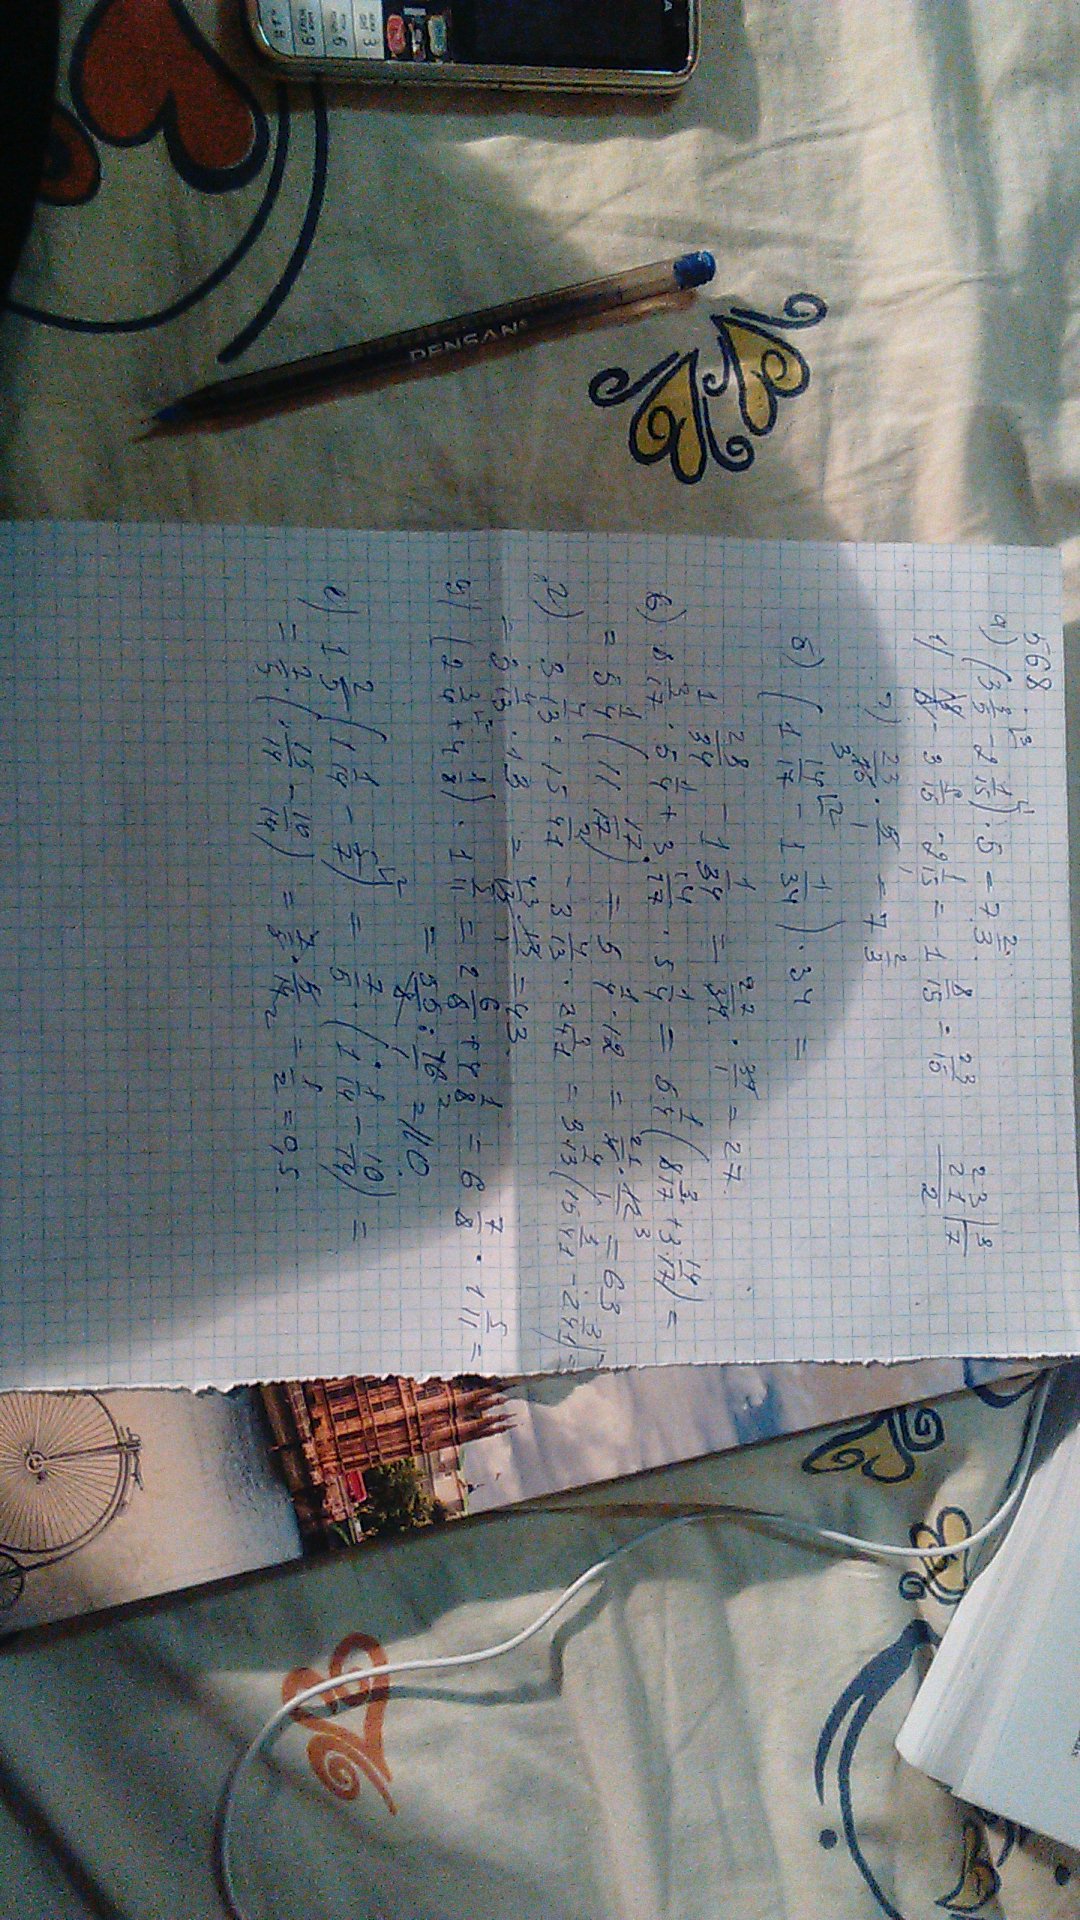 568.
а) (3 3/5 - 2 1/15) · 5 = 7 2/3.
1) 3 9/15 - 2 1/15 = 1 8/15 = 23/15
23 | 3
21 | 7
2
2) 23/15 · 5/1 = 7 2/3
б) (1 14/17 - 1 1/34) · 34 =
1 28/34 - 1 1/34 = 27/34 · 34/1 = 27.
в) 8 3/17 · 5 1/4 + 3 14/17 · 5 1/4 = 5 1/4 (8 3/17 + 3 14/17) =
= 5 1/4 (11 17/17) = 5 1/4 · 12 = 21/4 · 12/1 = 63
г) 3 4/13 · 15 3/41 - 3 4/13 · 2 3/41 = 3 4/13 (15 3/41 - 2 3/41) =
= 3 4/13 · 13 = 43/13 · 13/1 = 43
(2 3/4 + 4 1/8) · 1 5/11 = 2 6/8 + 4 1/8 = 6 7/8 · 1 5/11 =
= 55/8 : 16/11 = 10.
е) 1 2/5 · (1 1/14 - 5/7) = 7/5 · (1 1/14 - 10/14) =
= 7/5 · (15/14 - 10/14) = 7/5 · 5/14 = 1/2 = 0,5.
PENSAN